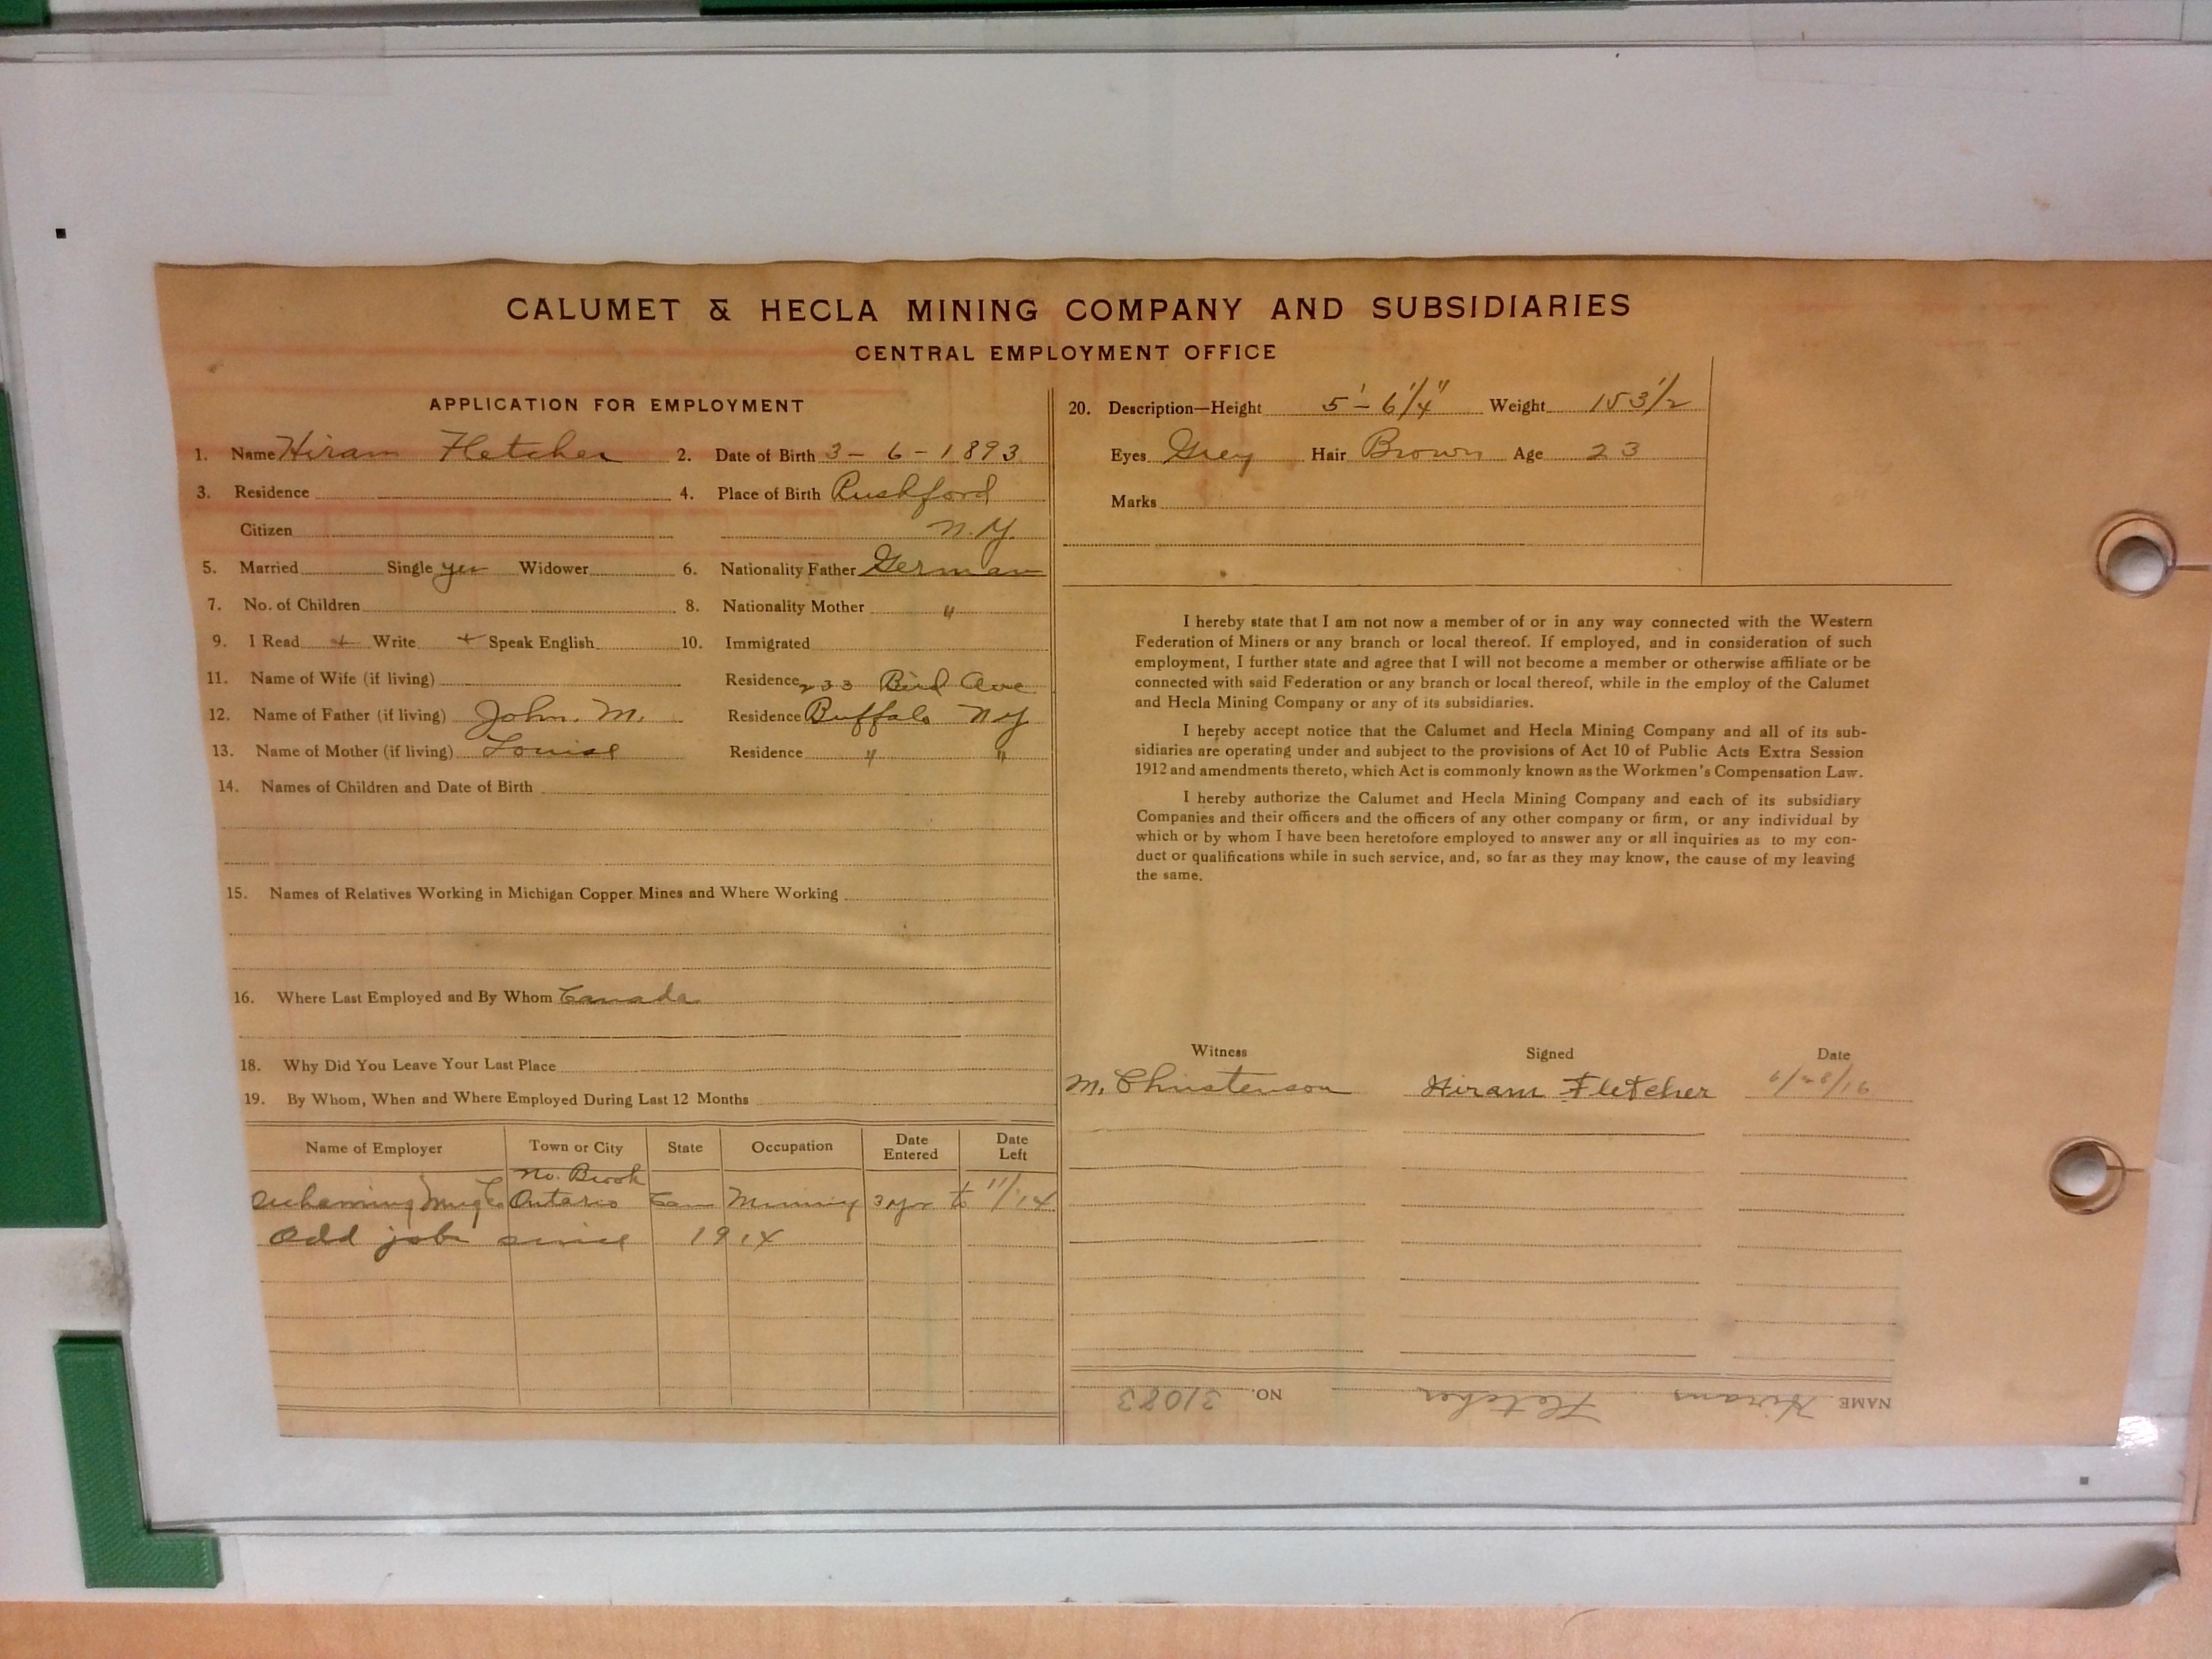 CALUMET & HECLA MINING COMPANY AND SUBSIDIARIES
CENTRAL EMPLOYMENT OFFICE
APPLICATION FOR EMPLOYMENT
1. Name Hiram Fletcher 2. Date of Birth 3-6-1893
3. Residence 4. Place of Birth Rushford
Citizen N.Y.
5. Married Single yes Widower 6. Nationality Father German
7. No. of Children 8. Nationality Mother "
9. I Read + Write + Speak English 10. Immigrated
11. Name of Wife (if living) Residence 233 Bird Ave
12. Name of Father (if living) John. M. Residence Buffalo NY
13. Name of Mother (if living) Louise Residence " "
14. Names of Children and Date of Birth
15. Names of Relatives Working in Michigan Copper Mines and Where Working
16. Where Last Employed and By Whom Canada
18. Why Did You Leave Your Last Place
19. By Whom, When and Where Employed During Last 12 Months
Name of Employer Town or City State Occupation Date Entered Date Left
No. Brook
Ontario Can Mining 3 yrs to 11/14
Odd jobs since 1914
20. Description—Height 5'-6 1/4" Weight 153 1/2
Eyes Grey Hair Brown Age 23
Marks
I hereby state that I am not now a member of or in any way connected with the Western
Federation of Miners or any branch or local thereof. If employed, and in consideration of such
employment, I further state and agree that I will not become a member or otherwise affiliate or be
connected with said Federation or any branch or local thereof, while in the employ of the Calumet
and Hecla Mining Company or any of its subsidiaries.
I hereby accept notice that the Calumet and Hecla Mining Company and all of its sub-
sidiaries are operating under and subject to the provisions of Act 10 of Public Acts Extra Session
1912 and amendments thereto, which Act is commonly known as the Workmen's Compensation Law.
I hereby authorize the Calumet and Hecla Mining Company and each of its subsidiary
Companies and their officers and the officers of any other company or firm, or any individual by
which or by whom I have been heretofore employed to answer any or all inquiries as to my con-
duct or qualifications while in such service, and, so far as they may know, the cause of my leaving
the same.
Witness Signed Date
M. Christenson Hiram Fletcher 6/28/16
NAME Hiram Fletcher NO. 31083